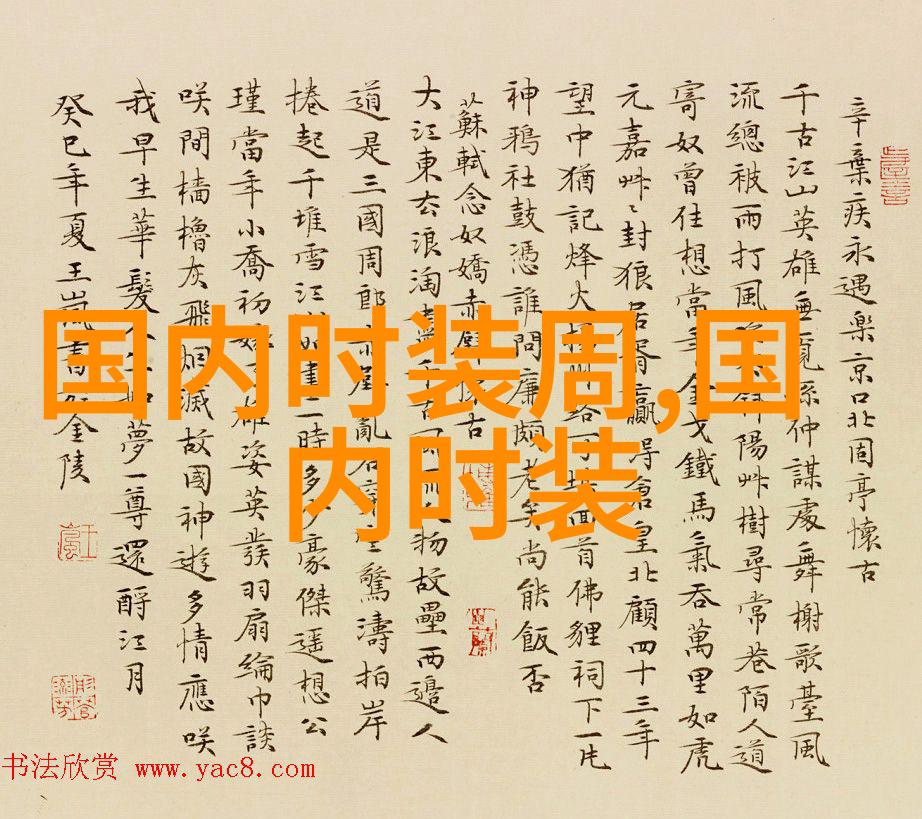 辛棄疾永遇樂京口北固亭懷古
千古江山英雄無覓孫仲謀處舞榭歌臺風
流總被雨打風斜陽艸樹尋常巷陌人道
寄奴曾住想當年金戈鐵馬氣吞萬里如虎
元嘉艸〻封狼居胥贏得倉皇北顧四十三年
望中猶記烽火揚州路可堪回首佛貍祠下一片
神鴉社鼓憑誰問廉頗老矣尚能飯否
蘇軾念奴嬌赤壁懷古
大江東去浪淘盡千古人物故壘西邊人
道是三國周郎赤壁亂石穿空驚濤拍岸
捲起千堆雪江山如畫一時多少豪傑遥想公
瑾當年小喬初嫁了雄姿英發羽扇綸巾談
咲間檣櫓灰飛烟滅故國神遊多情應咲
我早生華髮人如夢一尊還酹江月
癸巳年夏王嵐書於金陵
国内时装周,国
内时装
书法欣赏 www.yac8.com